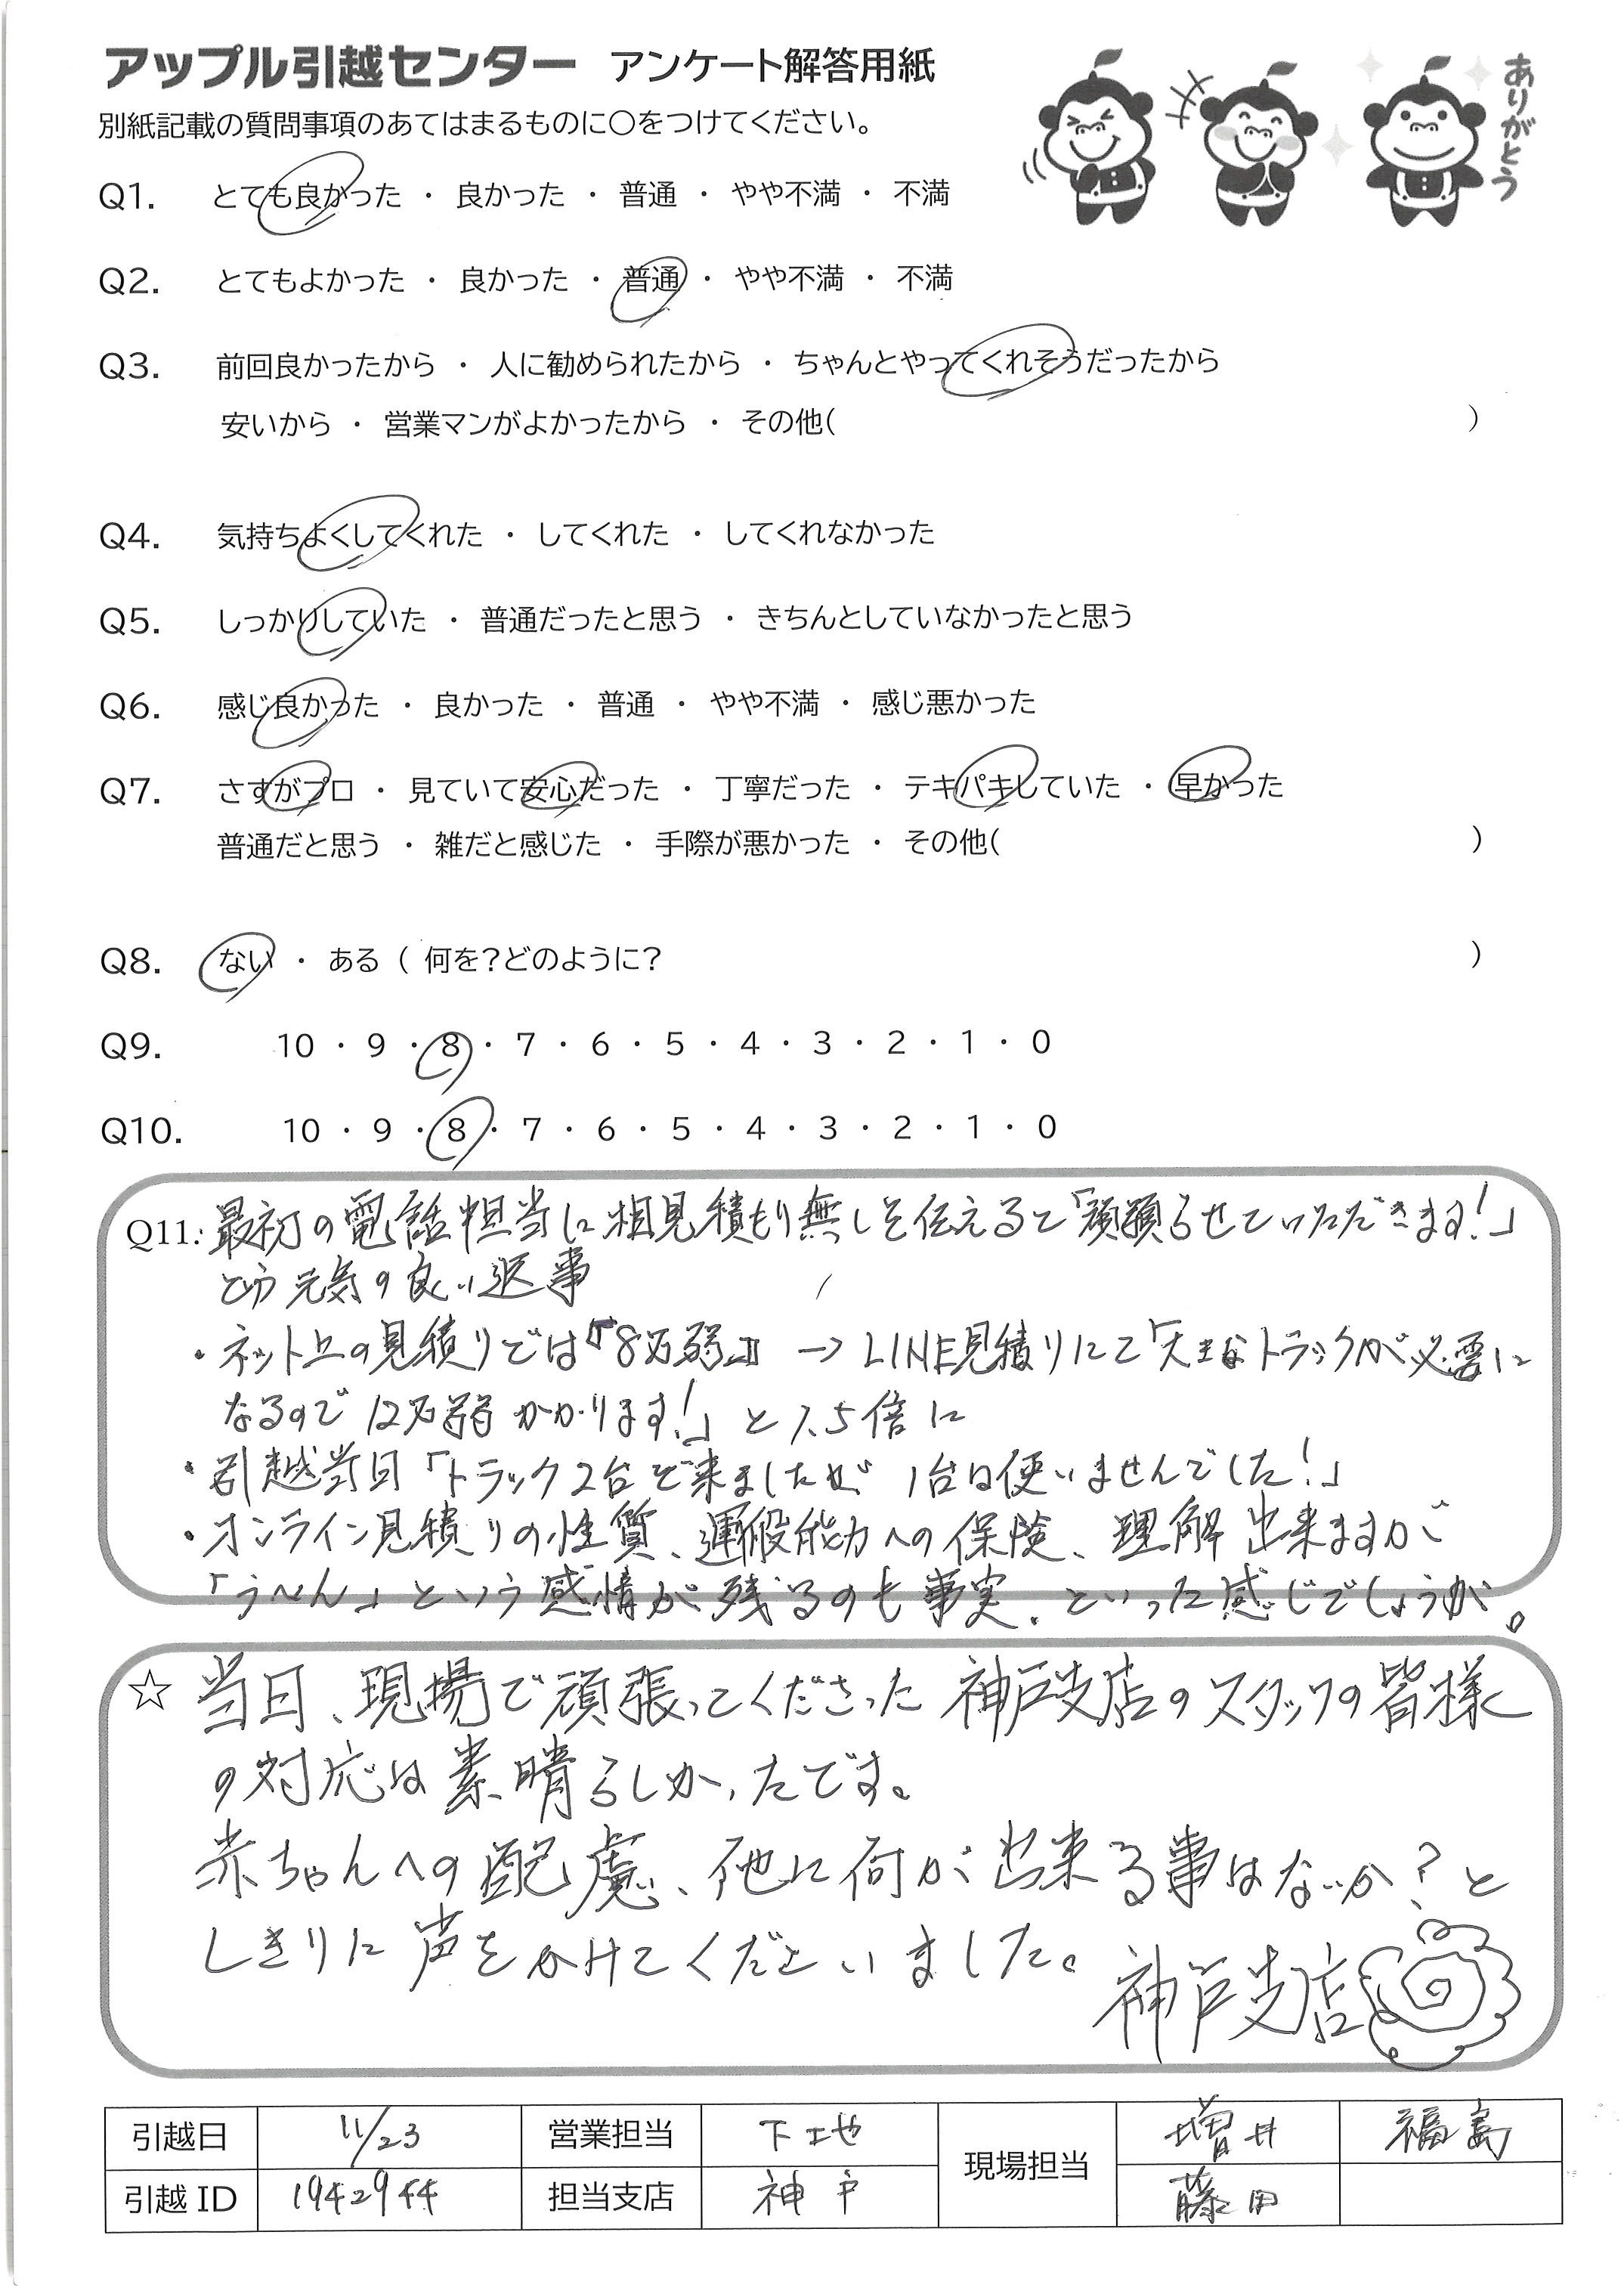 アップル引越センター アンケート解答用紙
ありがとう
別紙記載の質問事項のあてはまるものに〇をつけてください。
Q1. とても良かった ・ 良かった ・ 普通 ・ やや不満 ・ 不満
Q2. とてもよかった ・ 良かった ・ 普通 ・ やや不満 ・ 不満
Q3. 前回良かったから ・ 人に勧められたから ・ ちゃんとやってくれそうだったから
安いから ・ 営業マンがよかったから ・ その他( )
Q4. 気持ちよくしてくれた ・ してくれた ・ してくれなかった
Q5. しっかりしていた ・ 普通だったと思う ・ きちんとしていなかったと思う
Q6. 感じ良かった ・ 良かった ・ 普通 ・ やや不満 ・ 感じ悪かった
Q7. さすがプロ ・ 見ていて安心だった ・ 丁寧だった ・ テキパキしていた ・ 早かった
普通だと思う ・ 雑だと感じた ・ 手際が悪かった ・ その他( )
Q8. ない ・ ある ( 何を?どのように? )
Q9. 10 ・ 9 ・ 8 ・ 7 ・ 6 ・ 5 ・ 4 ・ 3 ・ 2 ・ 1 ・ 0
Q10. 10 ・ 9 ・ 8 ・ 7 ・ 6 ・ 5 ・ 4 ・ 3 ・ 2 ・ 1 ・ 0
Q11: 最初の電話担当に相見積もり無しを伝えると「頑張らせていただきます!」
という元気の良い返事
・ネット上の見積りでは『8万弱』 → LINE見積りにて「大きなトラックが必要に
なるので12万弱かかります!」と1.5倍に
・引越当日「トラック2台で来ましたが 1台は使いませんでした!」
・オンライン見積りの性質、運搬能力への保険、理解出来ますが
「う〜ん」という感情が残るのも事実。といった感じでしょうか。
☆ 当日、現場で頑張ってくださった神戸支店のスタッフの皆様
の対応は素晴らしかったです。
赤ちゃんへの配慮、他に何か出来る事はないか?と
しきりに声をかけてくださいました。 神戸支店
引越日 11/23 営業担当 下江也 現場担当 増井 福島
引越ID 1942944 担当支店 神戸 藤田